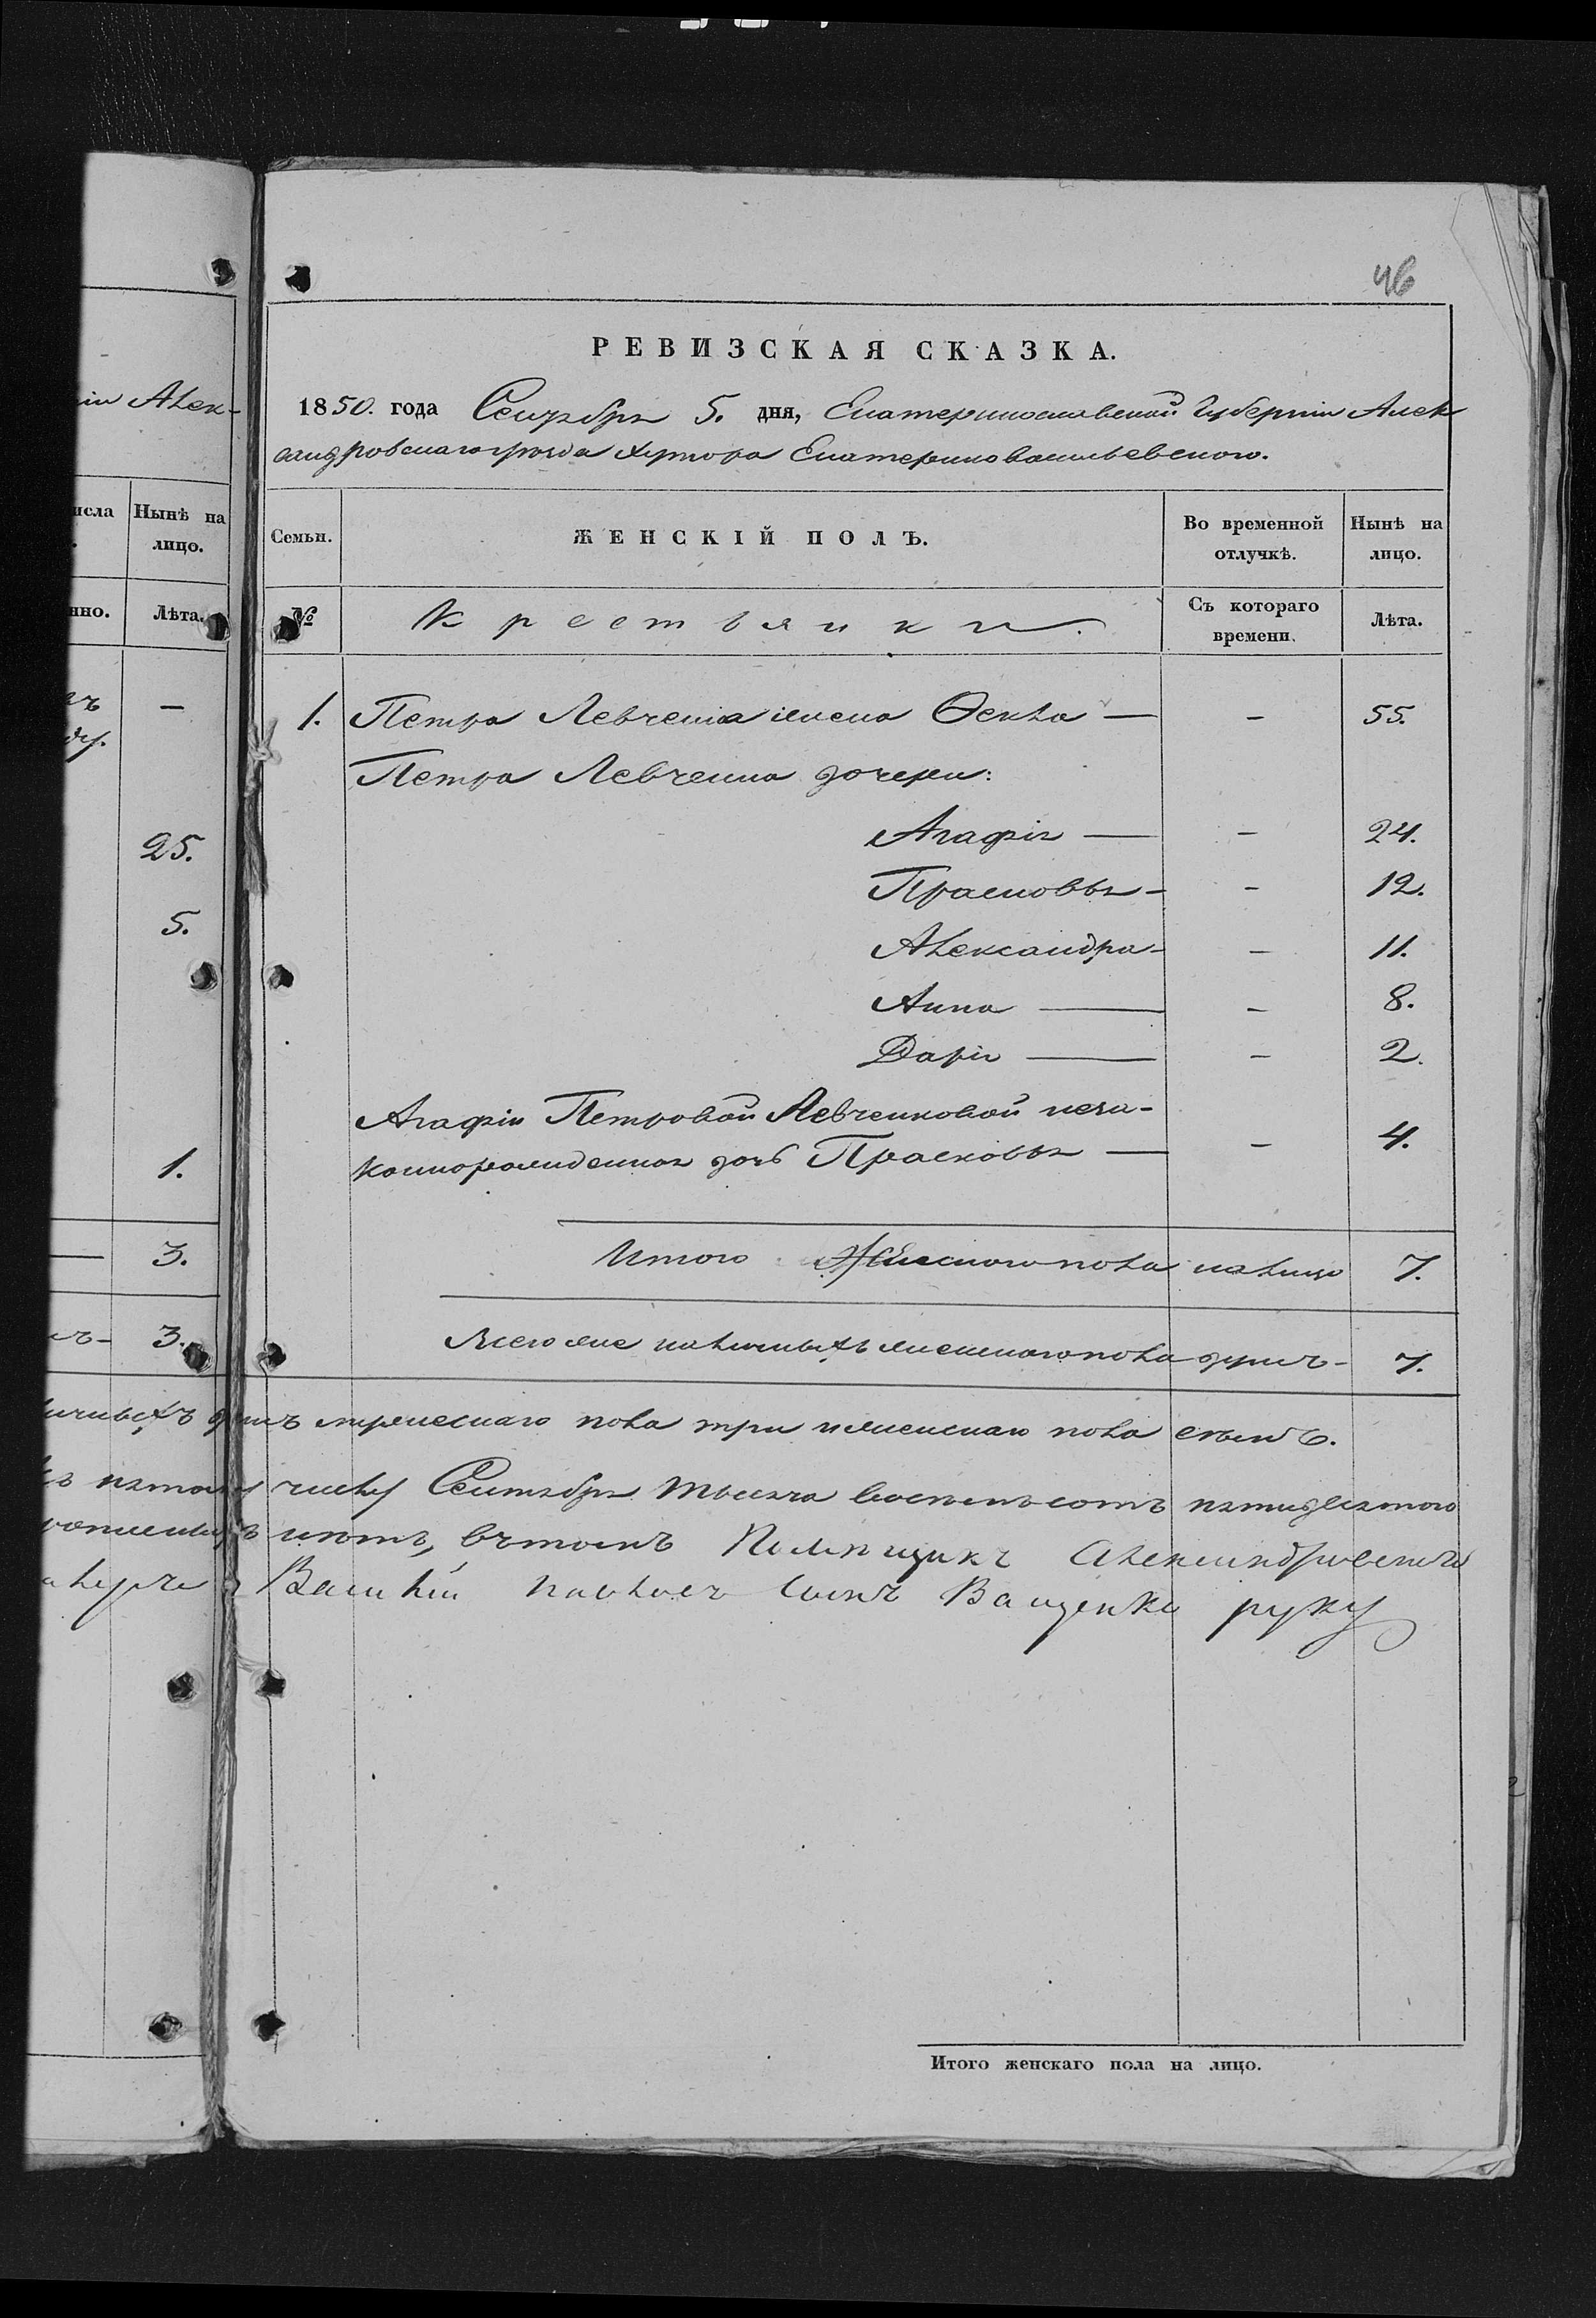 46
РЕВИЗСКАЯ СКАЗКА.
1850. года Сентября 5. дня, Екатеринославской Губерніи Алек
сандровскаго уѣзда Хутора Екатериновасильевского.
Семьи.
ЖЕНСКІЙ ПОЛЪ.
Во временной отлучкѣ.
Нынѣ на лицо.
№
Крестьянки.
Съ котораго времени.
Лѣта.
1. Петра Левченка жена Ѳекла — - 55.
Петра Левченка дочери:
Агафія — - 24.
Прасковья - - 12.
Александра - - 11.
Анна — - 8.
Дарія — - 2.
Агафіи Петровой Левченковой неза-
коннорожденная дочь Прасковья — - 4.
Итого Женского пола налицо 7.
Всего же наличныхъ женскаго пола душъ - 7.
душъ мужескаго пола три и женскаго пола семь.
числу Сентября тысяча восемьсотъ пятидесятого
нѣтъ, въ томъ Помѣщикъ Александровскаго
Василій Павловъ сынъ Ващенко руку
Итого женскаго пола на лицо.
іи Алек-
исла
Нынѣ на
лицо.
нно.
Лѣта.
—
25.
5.
1.
3.
3.